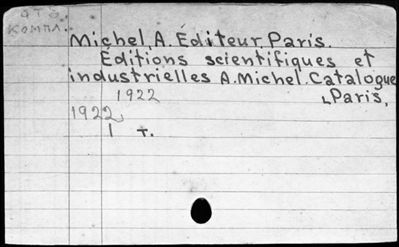 компл.
Michel, A. Éditeur, Paris.
Éditions scientifiques et
industrielles A. Michel. Catalogue
1922
Paris,
1922,
1 т.